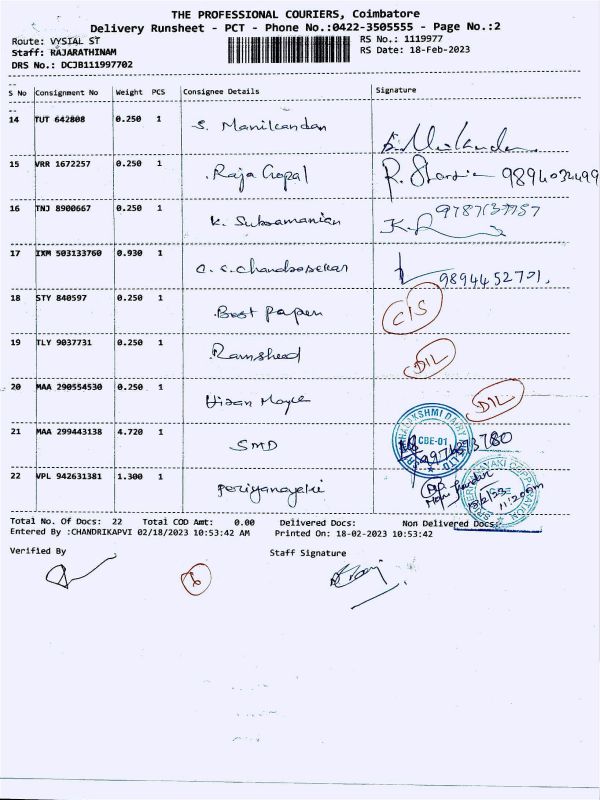 THE PROFESSIONAL COURIERS, Coimbatore
Delivery Runsheet - PCT - Phone No.:0422-3505555 - Page No.:2
Route: VYSIAL ST
RS No.: 1119977
Staff: RAJARATHINAM
RS Date: 18-Feb-2023
DRS No.: DCJB111997702
S No Consignment No Weight PCS Consignee Details Signature
14 TUT 642808 0.250 1 S. Manikandan
15 VRR 1672257 0.250 1 Raja Gopal R.
16 TNJ 8900667 0.250 1 K. Subramanian K.R
17 IXM 503133760 0.930 1 C.S. Chandrasekar 9894452701.
18 STY 840597 0.250 1 Best Paper C/S
19 TLY 9037731 0.250 1 Ramshed D/L
20 MAA 290554530 0.250 1 D/L
21 MAA 299443138 4.720 1 SMD CBE-01
22 VPL 942631381 1.300 1 periyanayaki
Total No. Of Docs: 22 Total COD Amt: 0.00 Delivered Docs: Non Delivered Docs:
Entered By :CHANDRIKAPVI 02/18/2023 10:53:42 AM Printed On: 18-02-2023 10:53:42
Verified By Staff Signature